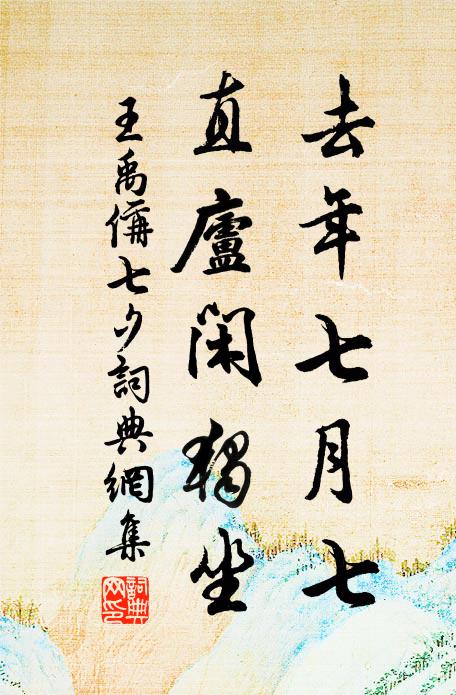 去年七月七
直廬閑獨坐
王禹偁七夕詞典網集
詞典